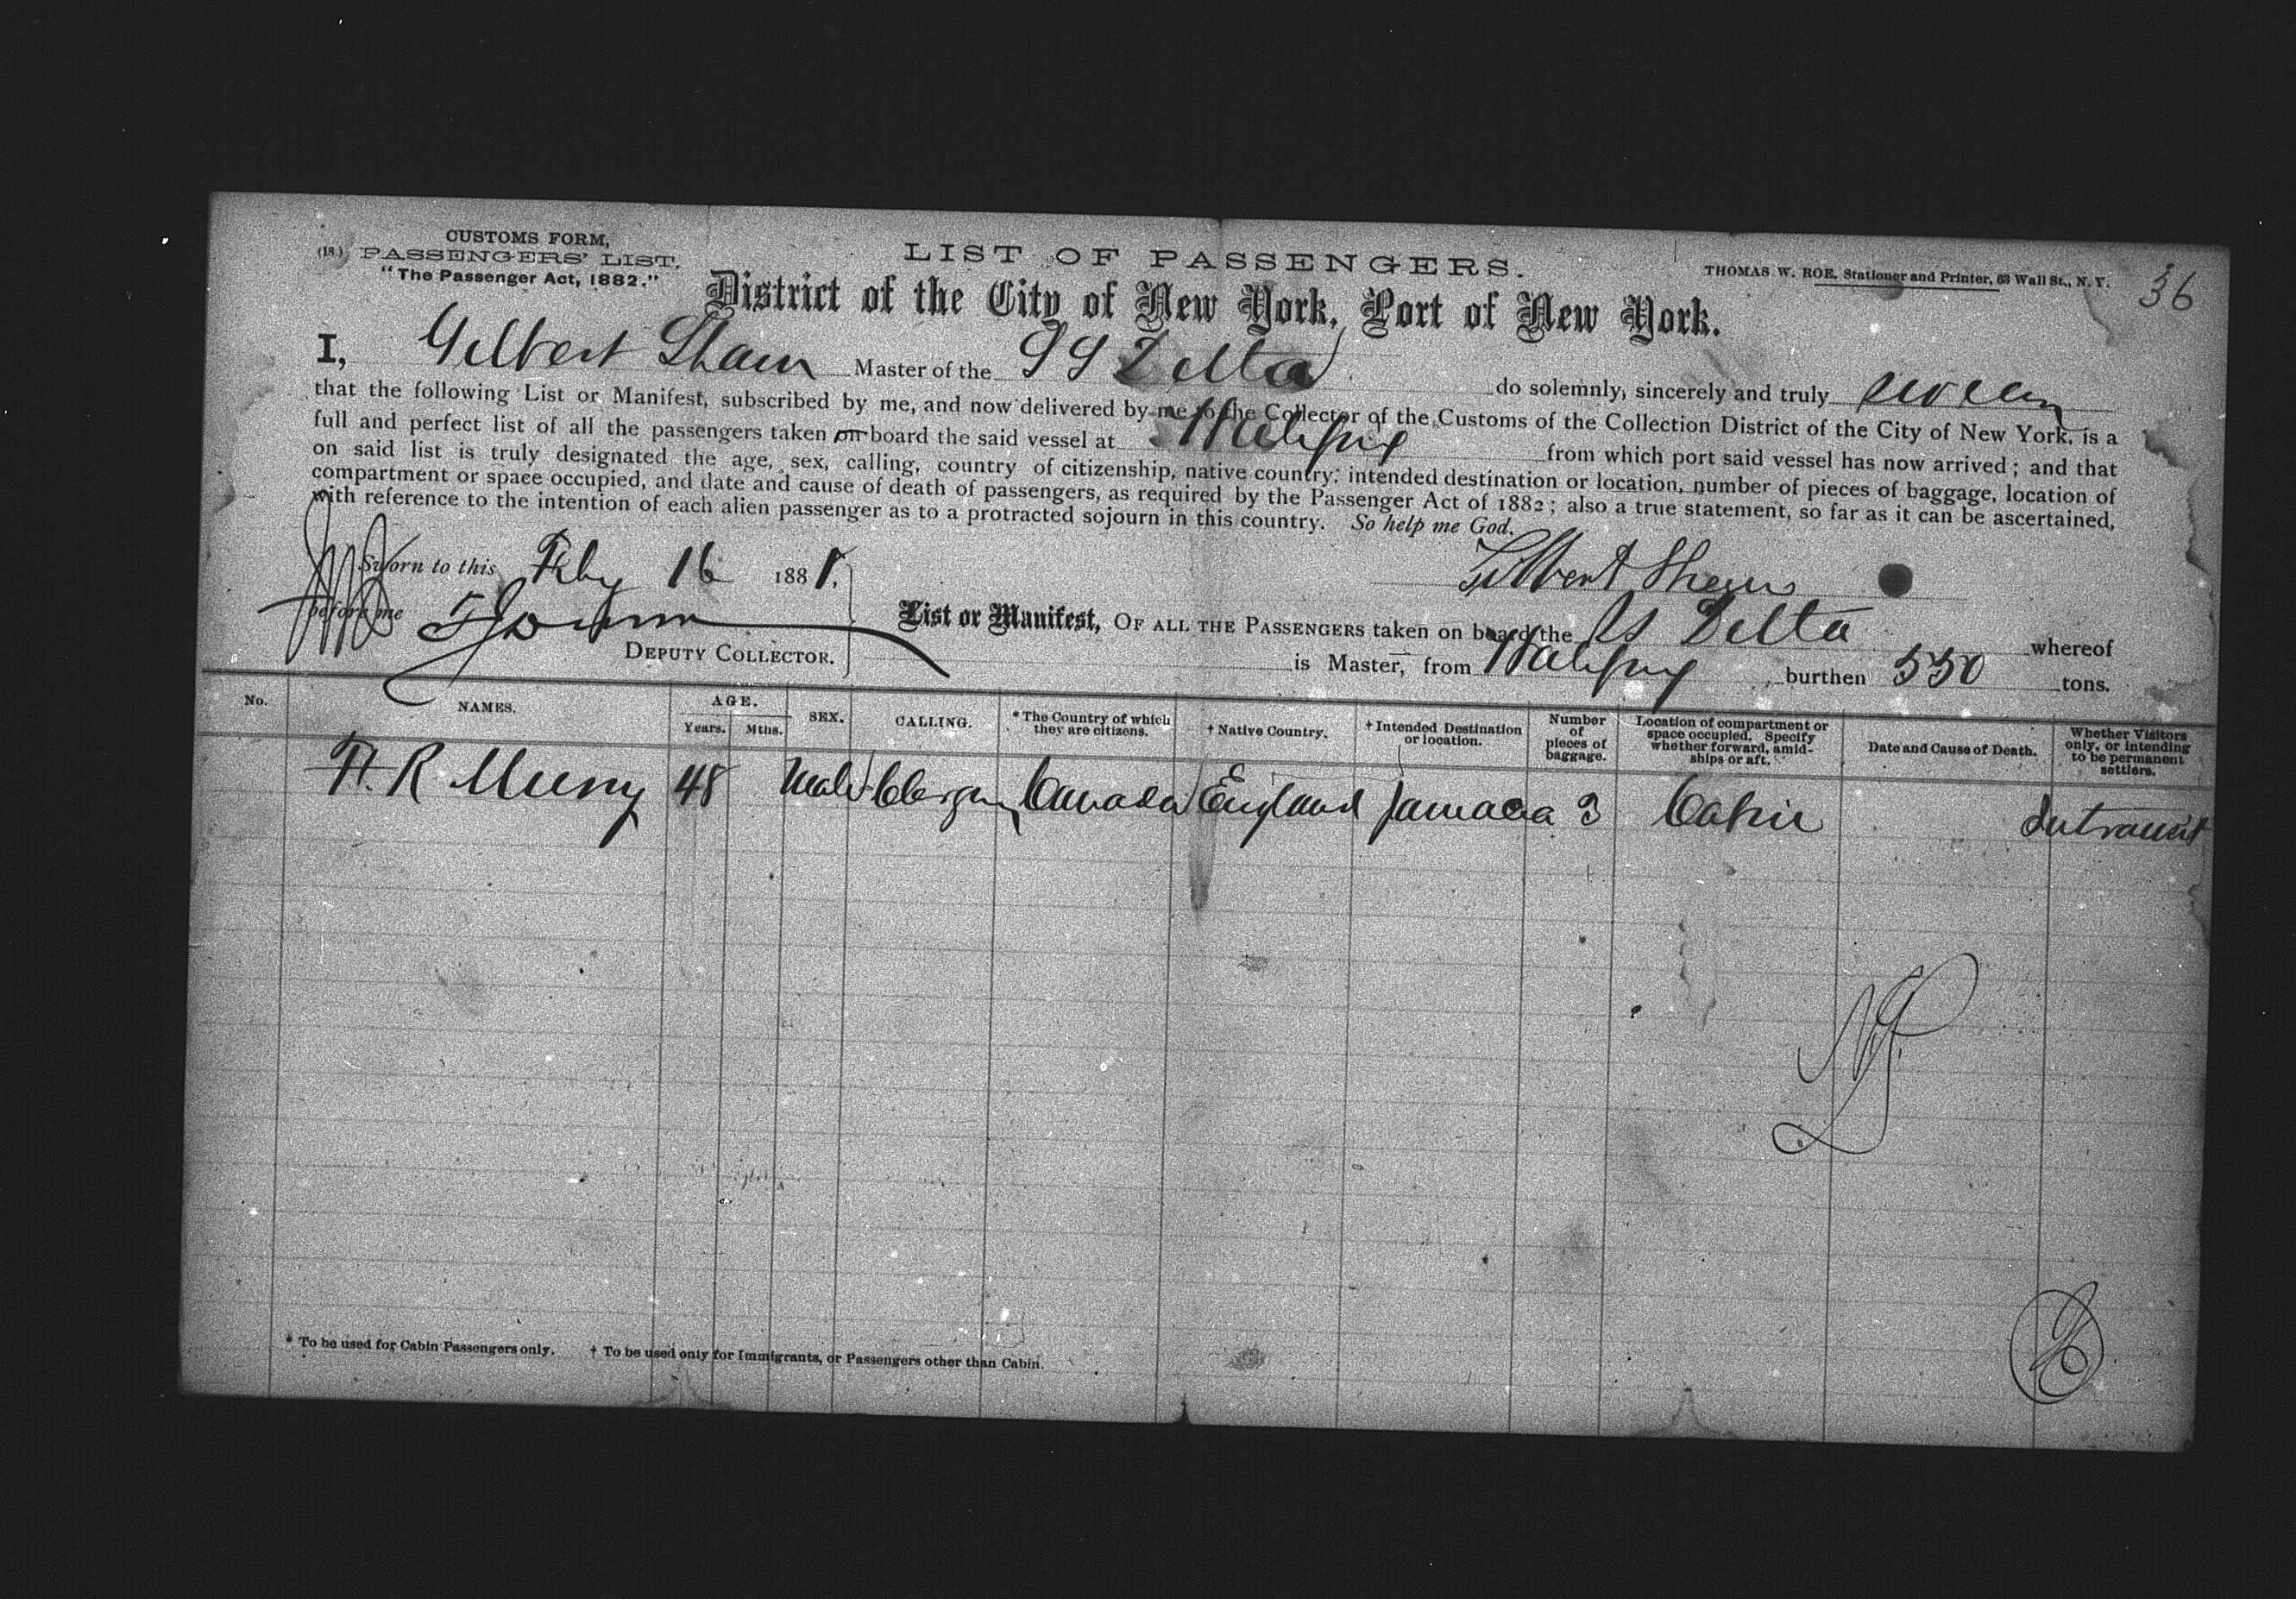 CUSTOMS FORM,
(18.) PASSENGERS' LIST.
"The Passenger Act, 1882."
LIST OF PASSENGERS.
THOMAS W. ROE, Stationer and Printer, 63 Wall St., N. Y.
36
District of the City of New York, Port of New York.
I, Gilbert Shaw Master of the SS Delta do solemnly, sincerely and truly swear
that the following List or Manifest, subscribed by me, and now delivered by me to the Collector of the Customs of the Collection District of the City of New York, is a
full and perfect list of all the passengers taken on board the said vessel at Halifax from which port said vessel has now arrived; and that
on said list is truly designated the age, sex, calling, country of citizenship, native country, intended destination or location, number of pieces of baggage, location of
compartment or space occupied, and date and cause of death of passengers, as required by the Passenger Act of 1882; also a true statement, so far as it can be ascertained,
with reference to the intention of each alien passenger as to a protracted sojourn in this country. So help me God.
Sworn to this Feby 16 1888.
Gilbert Shaw
before me
DEPUTY COLLECTOR.
List or Manifest, OF ALL THE PASSENGERS taken on board the SS Delta whereof
is Master, from Halifax burthen 550 tons.
No. NAMES. AGE. Years. Mths. SEX. CALLING. * The Country of which they are citizens. † Native Country. † Intended Destination or location. Number of pieces of baggage. Location of compartment or space occupied. Specify whether forward, amidships or aft. Date and Cause of Death. Whether Visitors only, or intending to be permanent settlers.
R 48 Male Canada England Jamaica 3 Cabin Intransit
* To be used for Cabin Passengers only. † To be used only for Immigrants, or Passengers other than Cabin.